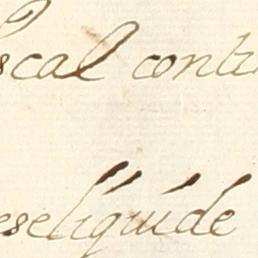 scal conti
eseliquide